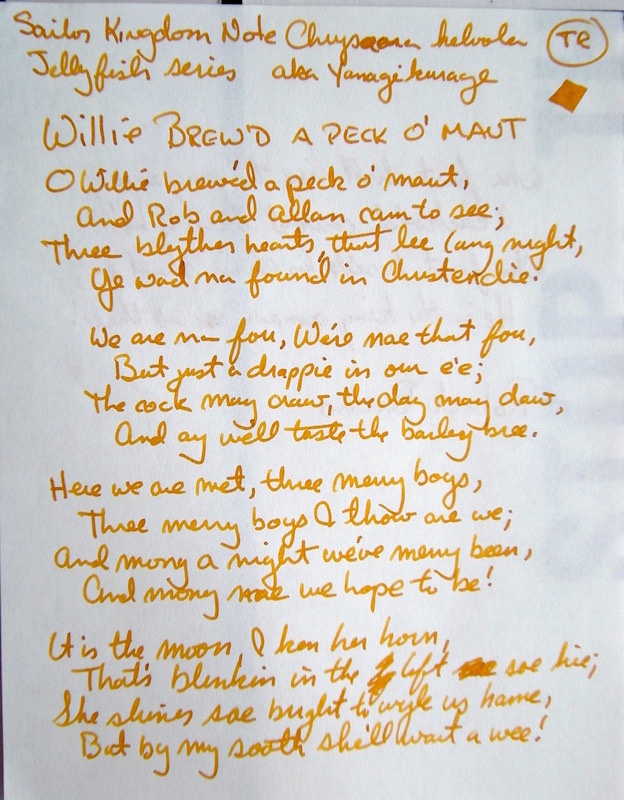 Sailor Kingdom Note Chrysaora helvola
TR
Jellyfish series aka Yanagikurage
WILLIE BREW'D A PECK O' MAUT
O Willie brew'd a peck o' maut,
And Rob and Allan cam to see;
Three blyther hearts, that lee lang night,
Ye wad na found in Christendie.
We are na fou, We're nae that fou,
But just a drappie in our e'e;
The cock may craw, the day may daw,
And ay we'll taste the barley bree.
Here we are met, three merry boys,
Three merry boys I trow are we;
And mony a night we've merry been,
And mony mae we hope to be!
It is the moon, I ken her horn,
That's blinkin in the lift sae hie;
She shines sae bright to wyle us hame,
But by my sooth she'll wait a wee!